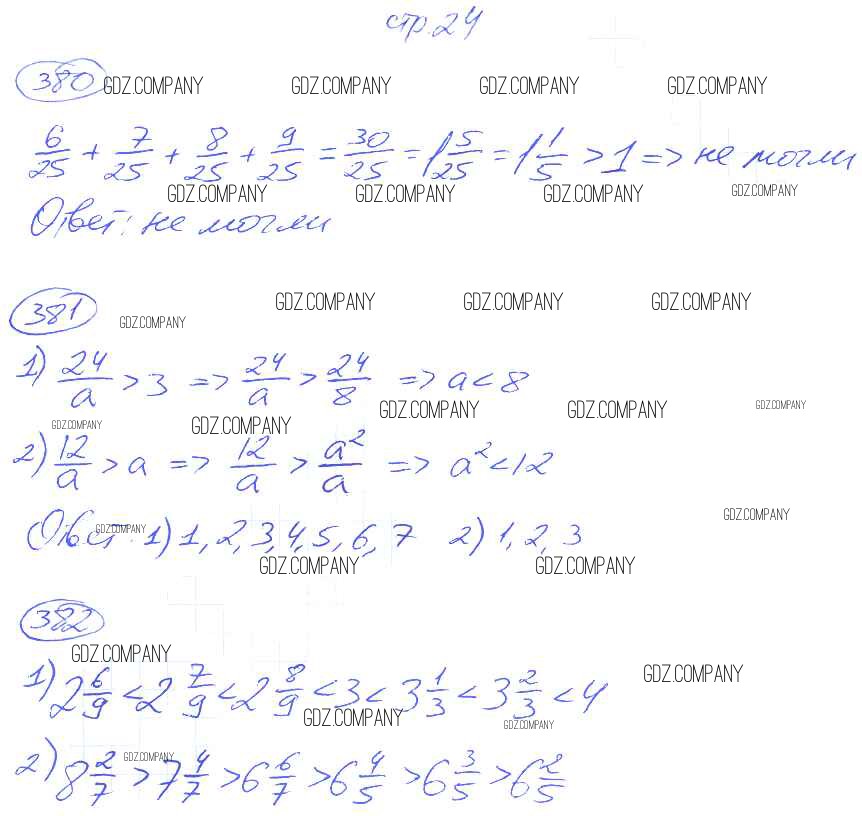 стр. 24
380 GDZ.COMPANY GDZ.COMPANY GDZ.COMPANY GDZ.COMPANY
6/25 + 7/25 + 8/25 + 9/25 = 30/25 = 1 5/25 = 1 1/5 > 1 => не могли
GDZ.COMPANY GDZ.COMPANY GDZ.COMPANY GDZ.COMPANY
Ответ: не могли
GDZ.COMPANY GDZ.COMPANY GDZ.COMPANY
381 GDZ.COMPANY
1) 24/a > 3 => 24/a > 24/8 => a < 8
GDZ.COMPANY GDZ.COMPANY GDZ.COMPANY GDZ.COMPANY GDZ.COMPANY
2) 12/a > a => 12/a > a²/a => a² < 12
GDZ.COMPANY
Ответ: 1) 1, 2, 3, 4, 5, 6, 7 2) 1, 2, 3
GDZ.COMPANY
GDZ.COMPANY GDZ.COMPANY
382
GDZ.COMPANY GDZ.COMPANY
1) 2 6/9 < 2 7/9 < 2 8/9 < 3 < 3 1/3 < 3 2/3 < 4
GDZ.COMPANY GDZ.COMPANY
GDZ.COMPANY
2) 8 2/7 > 7 4/7 > 6 6/7 > 6 4/5 > 6 3/5 > 6 2/5